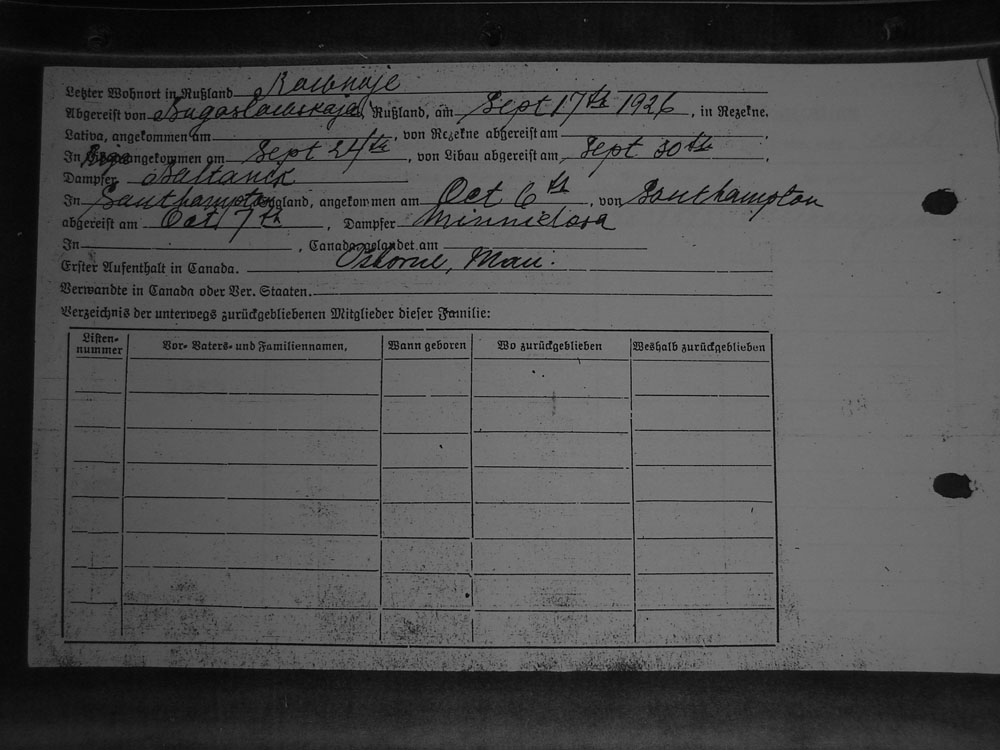 Letzter Wohnort in Rußland Rownoje
Abgereist von Bugoslawskaja, Rußland, am Sept 17th 1926, in Rezekne.
Lativa, angekommen am , von Rezekne abgereist am .
In Riga angekommen am Sept 24th, von Libau abgereist am Sept 30th.
Dampfer Baltanck
In Southampton gland, angekommen am Oct 6th, von Southampton
abgereist am Oct 7th, Dampfer Minnidosa
In , Canada gelandet am
Erster Aufenthalt in Canada. Osborne, Man.
Verwandte in Canada oder Ver. Staaten.
Verzeichnis der unterwegs zurückgebliebenen Mitglieder dieser Familie:
Listen-nummer Vor- Vaters- und Familiennamen, Wann geboren Wo zurückgeblieben Weshalb zurückgeblieben